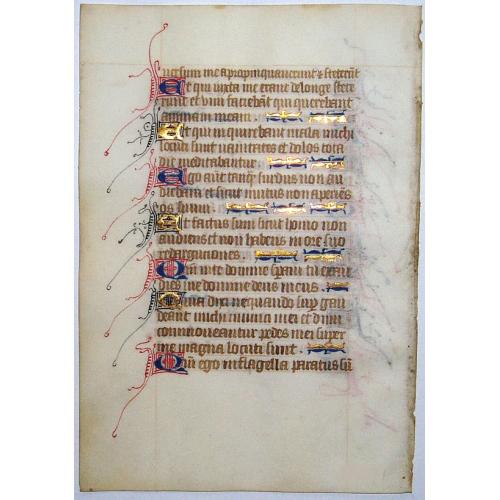 uersum me apropinquauerunt & steterūt
Et qui iuxta me erant delonge stete
runt et vim faciebāt qui querebant
animam meam
Et qui inquirebant mala michi
locuti sunt uanitates et dolos tota
die meditabantur
Ego aūt tanq̄ surdus non au
diebam et sicut mutus non aperiēs
os suum
Et factus sum sicut homo non
audiens et non habens in ore suo
redarguciones
Qm̄ in te domine speraui tu exau
dies me domine deus meus
Quia dixi nequando sup gau
deant michi inimici mei et dum
commoueantur pedes mei super
me magna locuti sunt
Qm̄ ego in flagella paratus sū